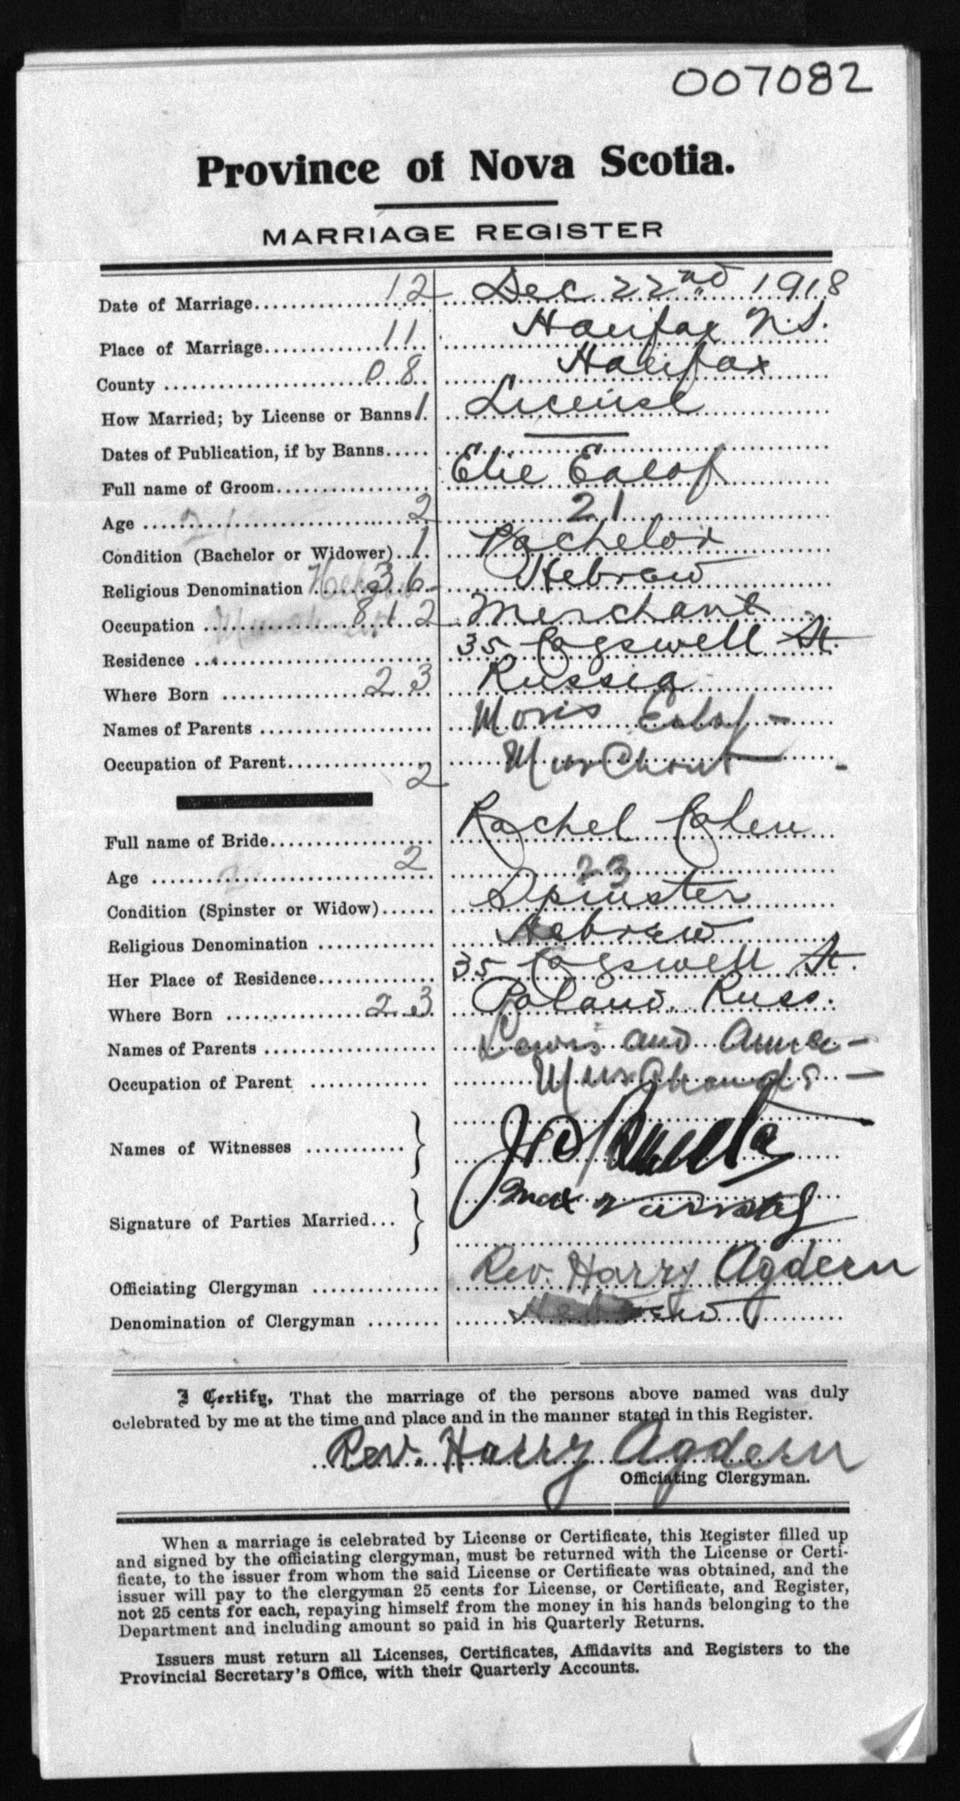 007082
Province of Nova Scotia.
MARRIAGE REGISTER
Date of Marriage 12 Dec 22nd 1918
Place of Marriage 11 Halifax N.S.
County 08 Halifax
How Married; by License or Banns 1 License
Dates of Publication, if by Banns —
Full name of Groom Elie Ealof
Age 21 2 21
Condition (Bachelor or Widower) 1 Bachelor
Religious Denomination 36 Hebrew
Occupation 812 Merchant
Residence 35 Cogswell St.
Where Born 23 Russia
Names of Parents Moris Ealof -
Occupation of Parent Murchont -
2
Full name of Bride Rachel Cohen
Age 2 2 23
Condition (Spinster or Widow) Spinster
Religious Denomination Hebrew
Her Place of Residence 35 Cogswell St.
Where Born 23 Poland. Russ.
Names of Parents Lewis and Annie -
Occupation of Parent -
Names of Witnesses
Signature of Parties Married Max
Officiating Clergyman Rev. Harry Agdern
Denomination of Clergyman Hebrew
I Certify, That the marriage of the persons above named was duly
celebrated by me at the time and place and in the manner stated in this Register.
Rev. Harry Agdern
Officiating Clergyman.
When a marriage is celebrated by License or Certificate, this Register filled up
and signed by the officiating clergyman, must be returned with the License or Certi-
ficate, to the issuer from whom the said License or Certificate was obtained, and the
issuer will pay to the clergyman 25 cents for License, or Certificate, and Register,
not 25 cents for each, repaying himself from the money in his hands belonging to the
Department and including amount so paid in his Quarterly Returns.
Issuers must return all Licenses, Certificates, Affidavits and Registers to the
Provincial Secretary's Office, with their Quarterly Accounts.